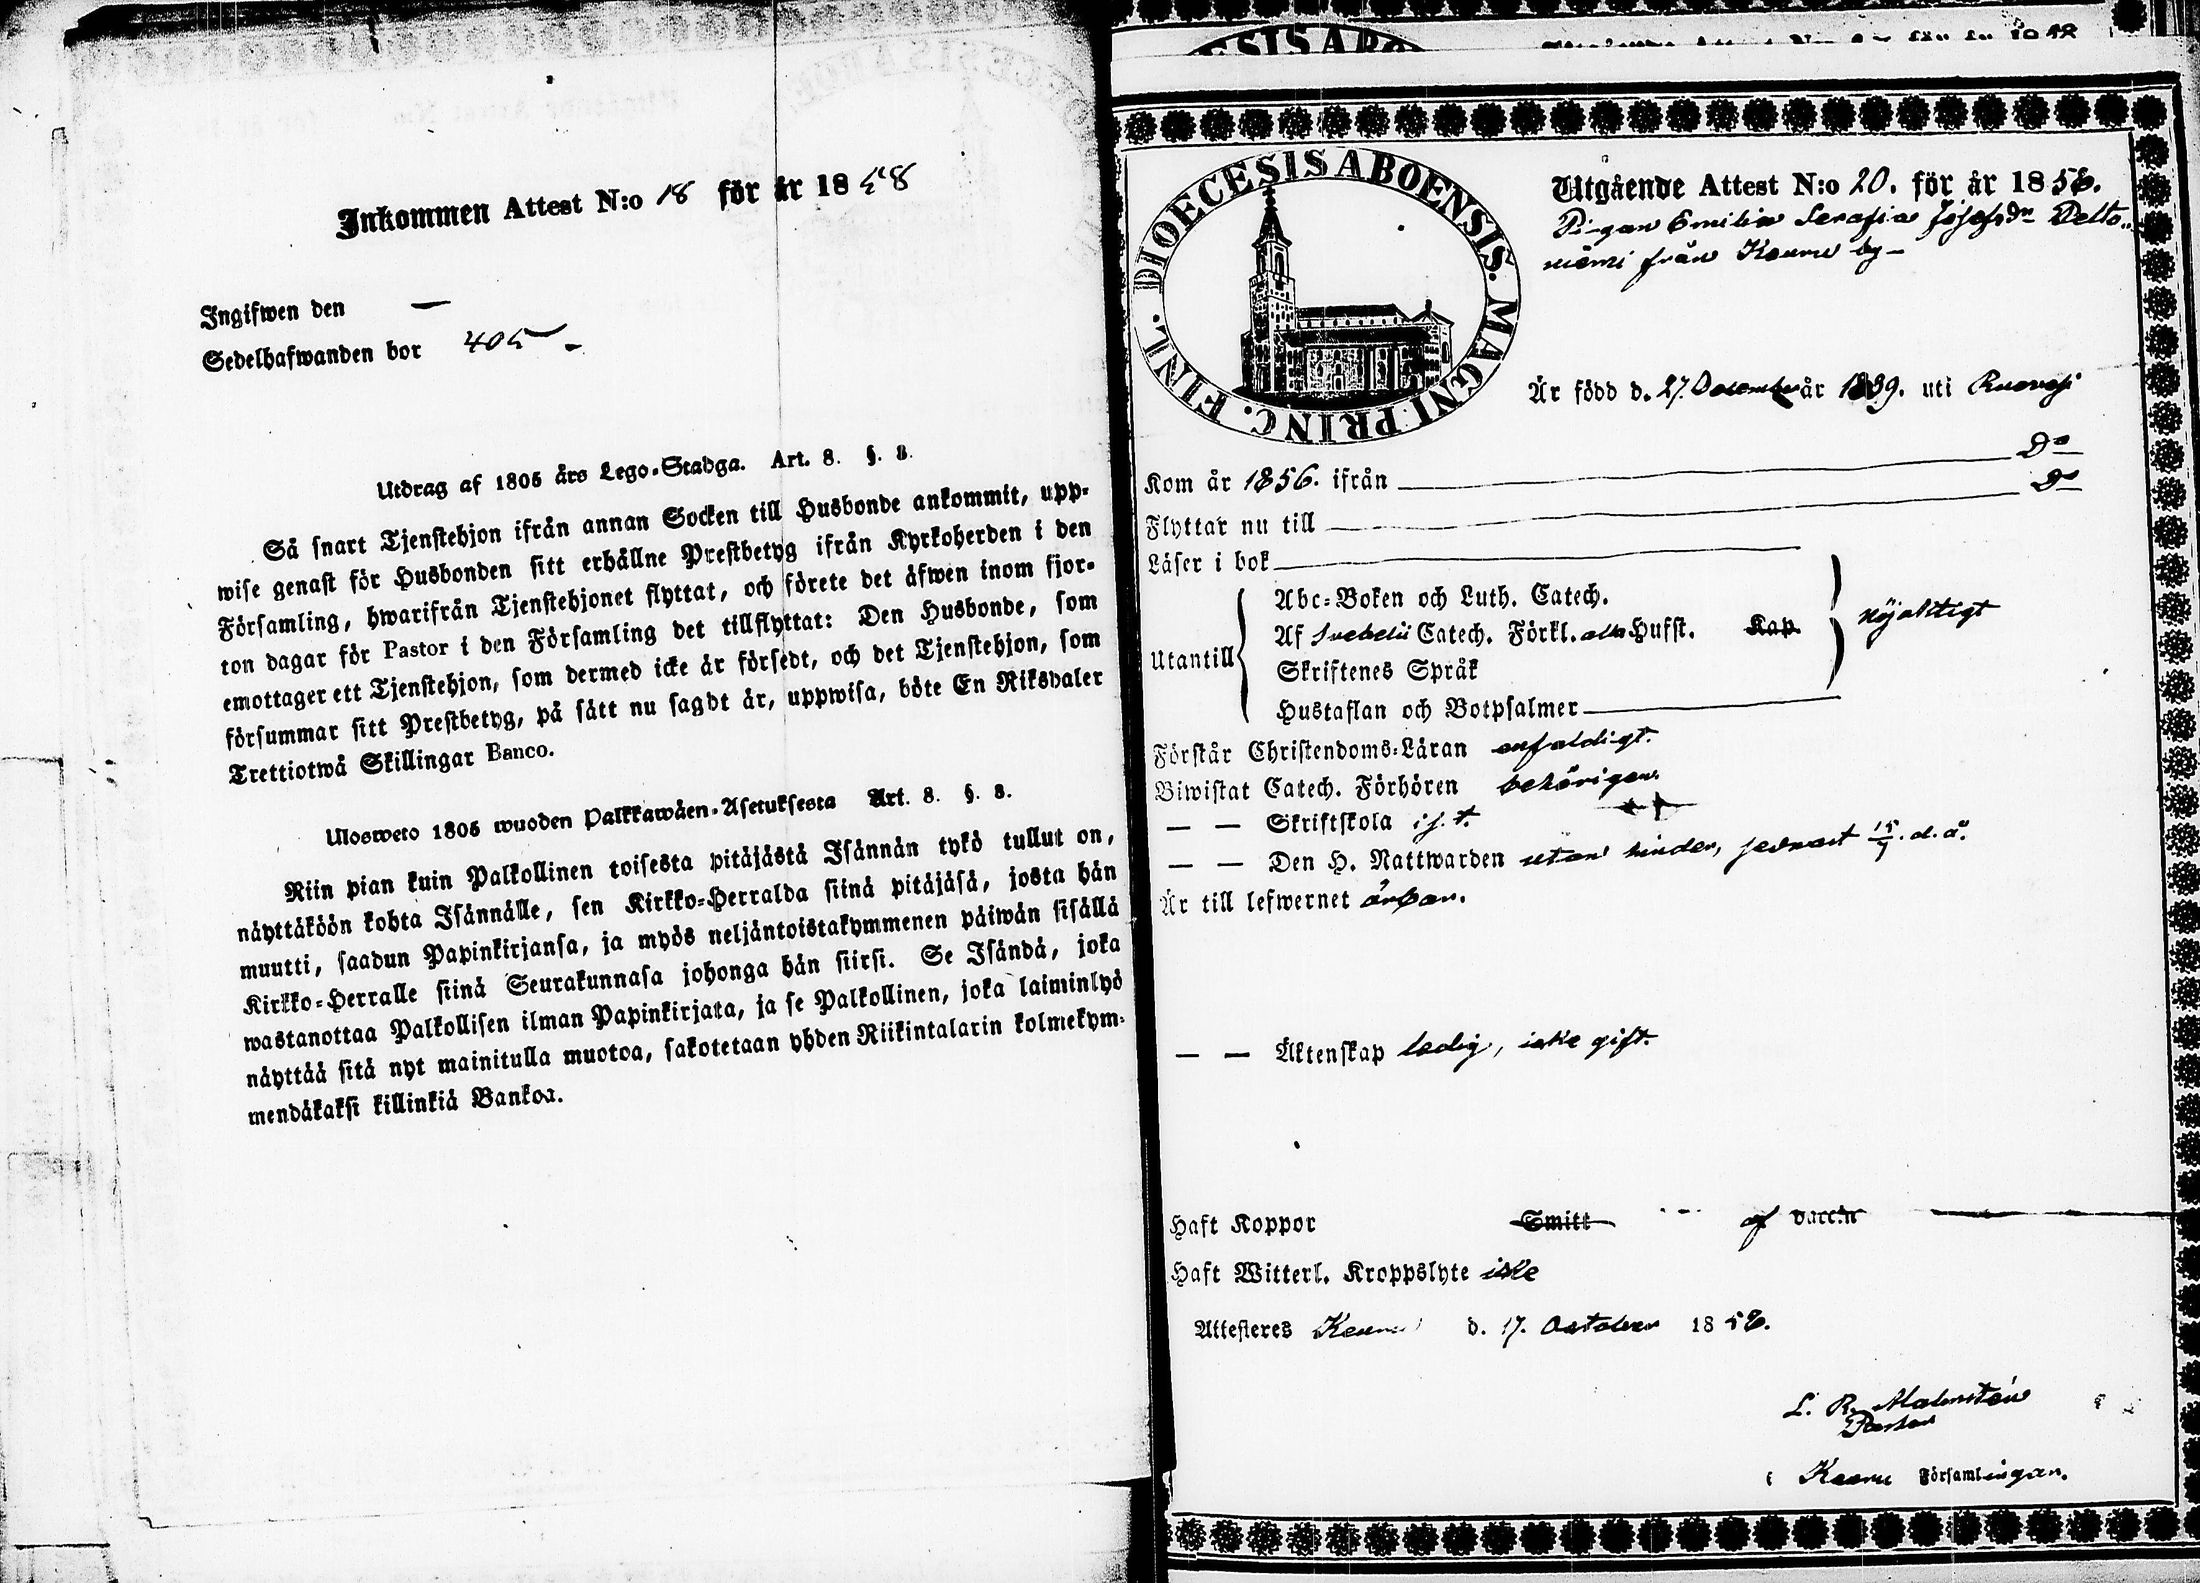 Inkommen Attest N:o 18 för år 1858
Ingifwen den —
Sedelhafwanden bor 405 -
Utdrag af 1805 års Lego-Stadga. Art. 8. §. 8.
Så snart Tjenstehjon ifrån annan Socken till Husbonde ankommit, upp-
wise genast för Husbonden sitt erhållne Prestbetyg ifrån Kyrkoherden i den
Församling, hwarifrån Tjenstehjonet flyttat, och förete det äfwen inom fjor-
ton dagar för Pastor i den Församling det tillflyttat: Den Husbonde, som
emottager ett Tjenstehjon, som dermed icke är försedt, och det Tjenstehjon, som
försummar sitt Prestbetyg, på sätt nu sagdt är, uppwisa, böte En Riksdaler
Trettiotwå Skillingar Banco.
Ulosweto 1805 wuoden Palkkawäen-Asetuksesta Art. 8. §. 8.
Niin pian kuin Palkollinen toisesta pitäjästä Isännän tykö tullut on,
näyttäköön kohta Isännälle, sen Kirkko-Herralda siinä pitäjäsä, josta hän
muutti, saadun Papinkirjansa, ja myös neljäntoistakymmenen päiwän sisällä
Kirkko-Herralle siinä Seurakunnasa johonga hän siirsi. Se Isändä, joka
wastanottaa Palkollisen ilman Papinkirjata, ja se Palkollinen, joka laiminlyö
näyttää sitä nyt mainitulla muotoa, sakotetaan yhden Riikintalarin kolmekym-
mendäkaksi killinkiä Bankoa.
DIOECESIS ABOENSIS. MAGNI PRINC. FINL.
Utgående Attest N:o 20. för år 1858.
Pigan Emilia Serafia Josefsdr Pelto-
niemi från Keuru by -
Är född d. 27. December år 1839. uti Ruovesi
Kom år 1856. ifrån Do
Flyttar nu till Do
Läser i bok
Utantill
Abc-Boken och Luth. Catech.
Af Svebelii Catech. Förkl. Husst. Kap. nöjaktigt
Skriftenes Språk
Hustaflan och Botpsalmer
Förstår Christendoms-Läran enfaldigt.
Biwistat Catech. Förhören behörigen
— — Skriftskola
— — Den H. Nattwarden utan hinder, senast 15/7. d. å.
Är till lefwernet ärbar.
— — Äktenskap ledig, icke gift.
Haft Koppor Smitt af vaccin
Haft Witterl. Kroppslyte icke
Attesteres Keuru d. 17. October 1858.
L. R. Malmstén
Pastor
i Keuru Församlingan.